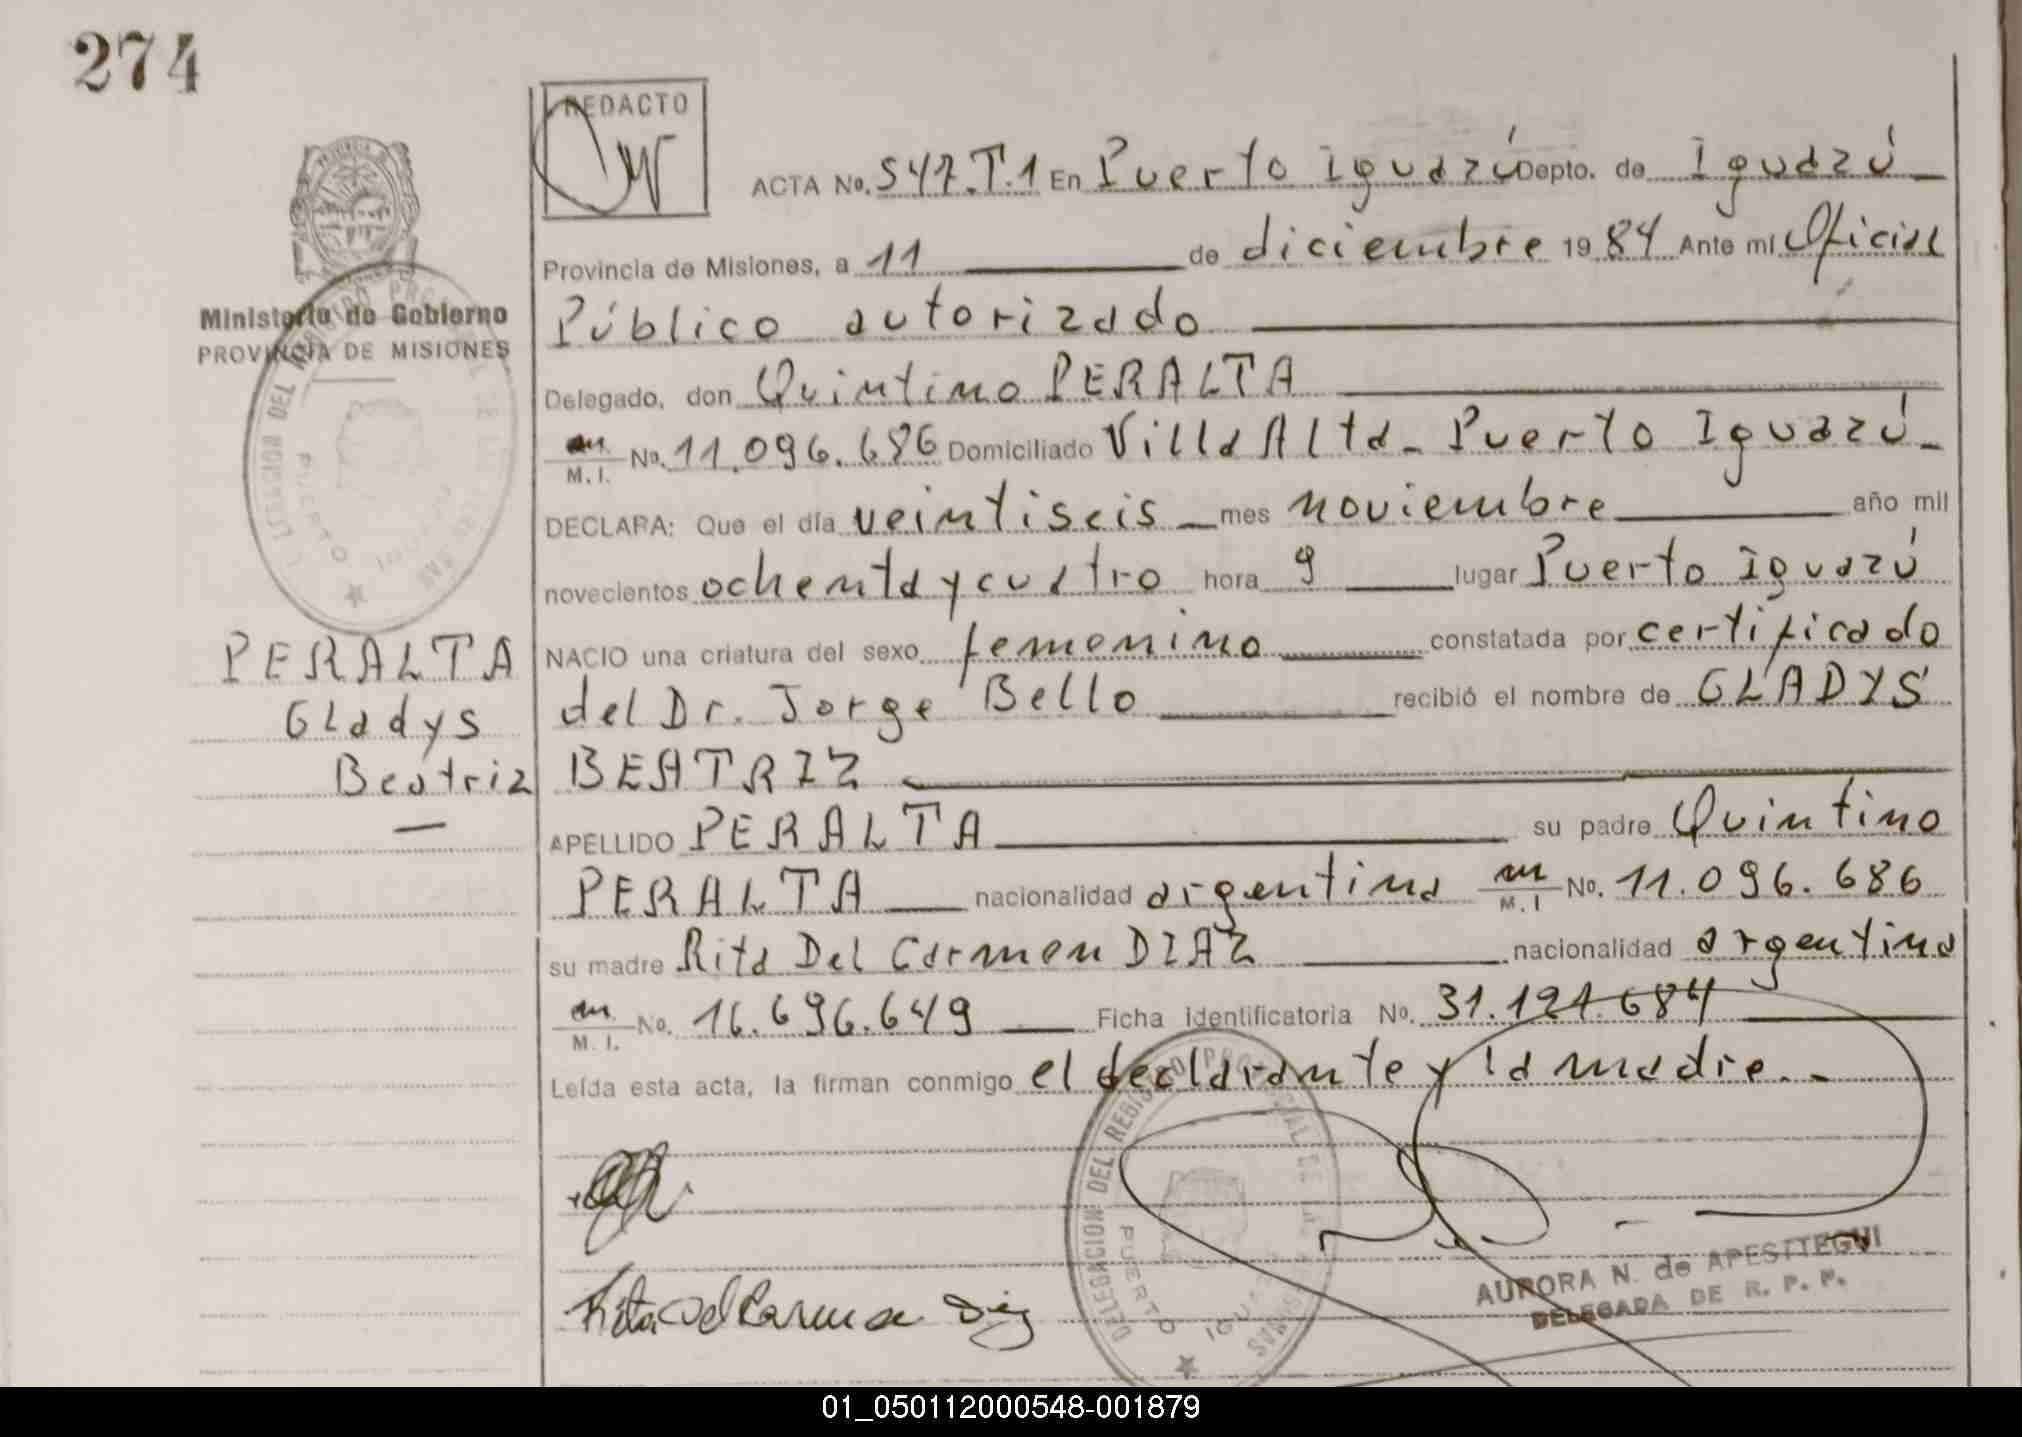 274
REDACTO
ACTA No. 547.T.1 En Puerto Iguazú Depto. de Iguazú
Provincia de Misiones, a 11 de diciembre 19 84 Ante mi Oficial
Público autorizado
Delegado, don Quintino PERALTA
M. I. No. 11.096.686 Domiciliado Villa Alta - Puerto Iguazú -
DECLARA: Que el día veintiseis mes noviembre año mil
novecientos ochenta y cuatro hora 9 lugar Puerto Iguazú
NACIO una criatura del sexo femenino constatada por certificado
del Dr. Jorge Bello recibió el nombre de GLADYS
BEATRIZ
APELLIDO PERALTA su padre Quintino
PERALTA nacionalidad argentina M. I No. 11.096.686
su madre Rita Del Carmen DIAZ nacionalidad argentina
M. I. No. 16.696.649 Ficha identificatoria No. 31.121.684
Leída esta acta, la firman conmigo el declarante y la madre. -
Rita del Carmen Diaz
AURORA N. de APESTTEGUI
DELEGADA DE R. P. P.
DELEGACION DEL REGISTRO PROVINCIAL DE LAS PERSONAS
PUERTO IGUAZU
Ministerio de Gobierno
PROVINCIA DE MISIONES
PERALTA
Gladys
Beatriz
01_050112000548-001879